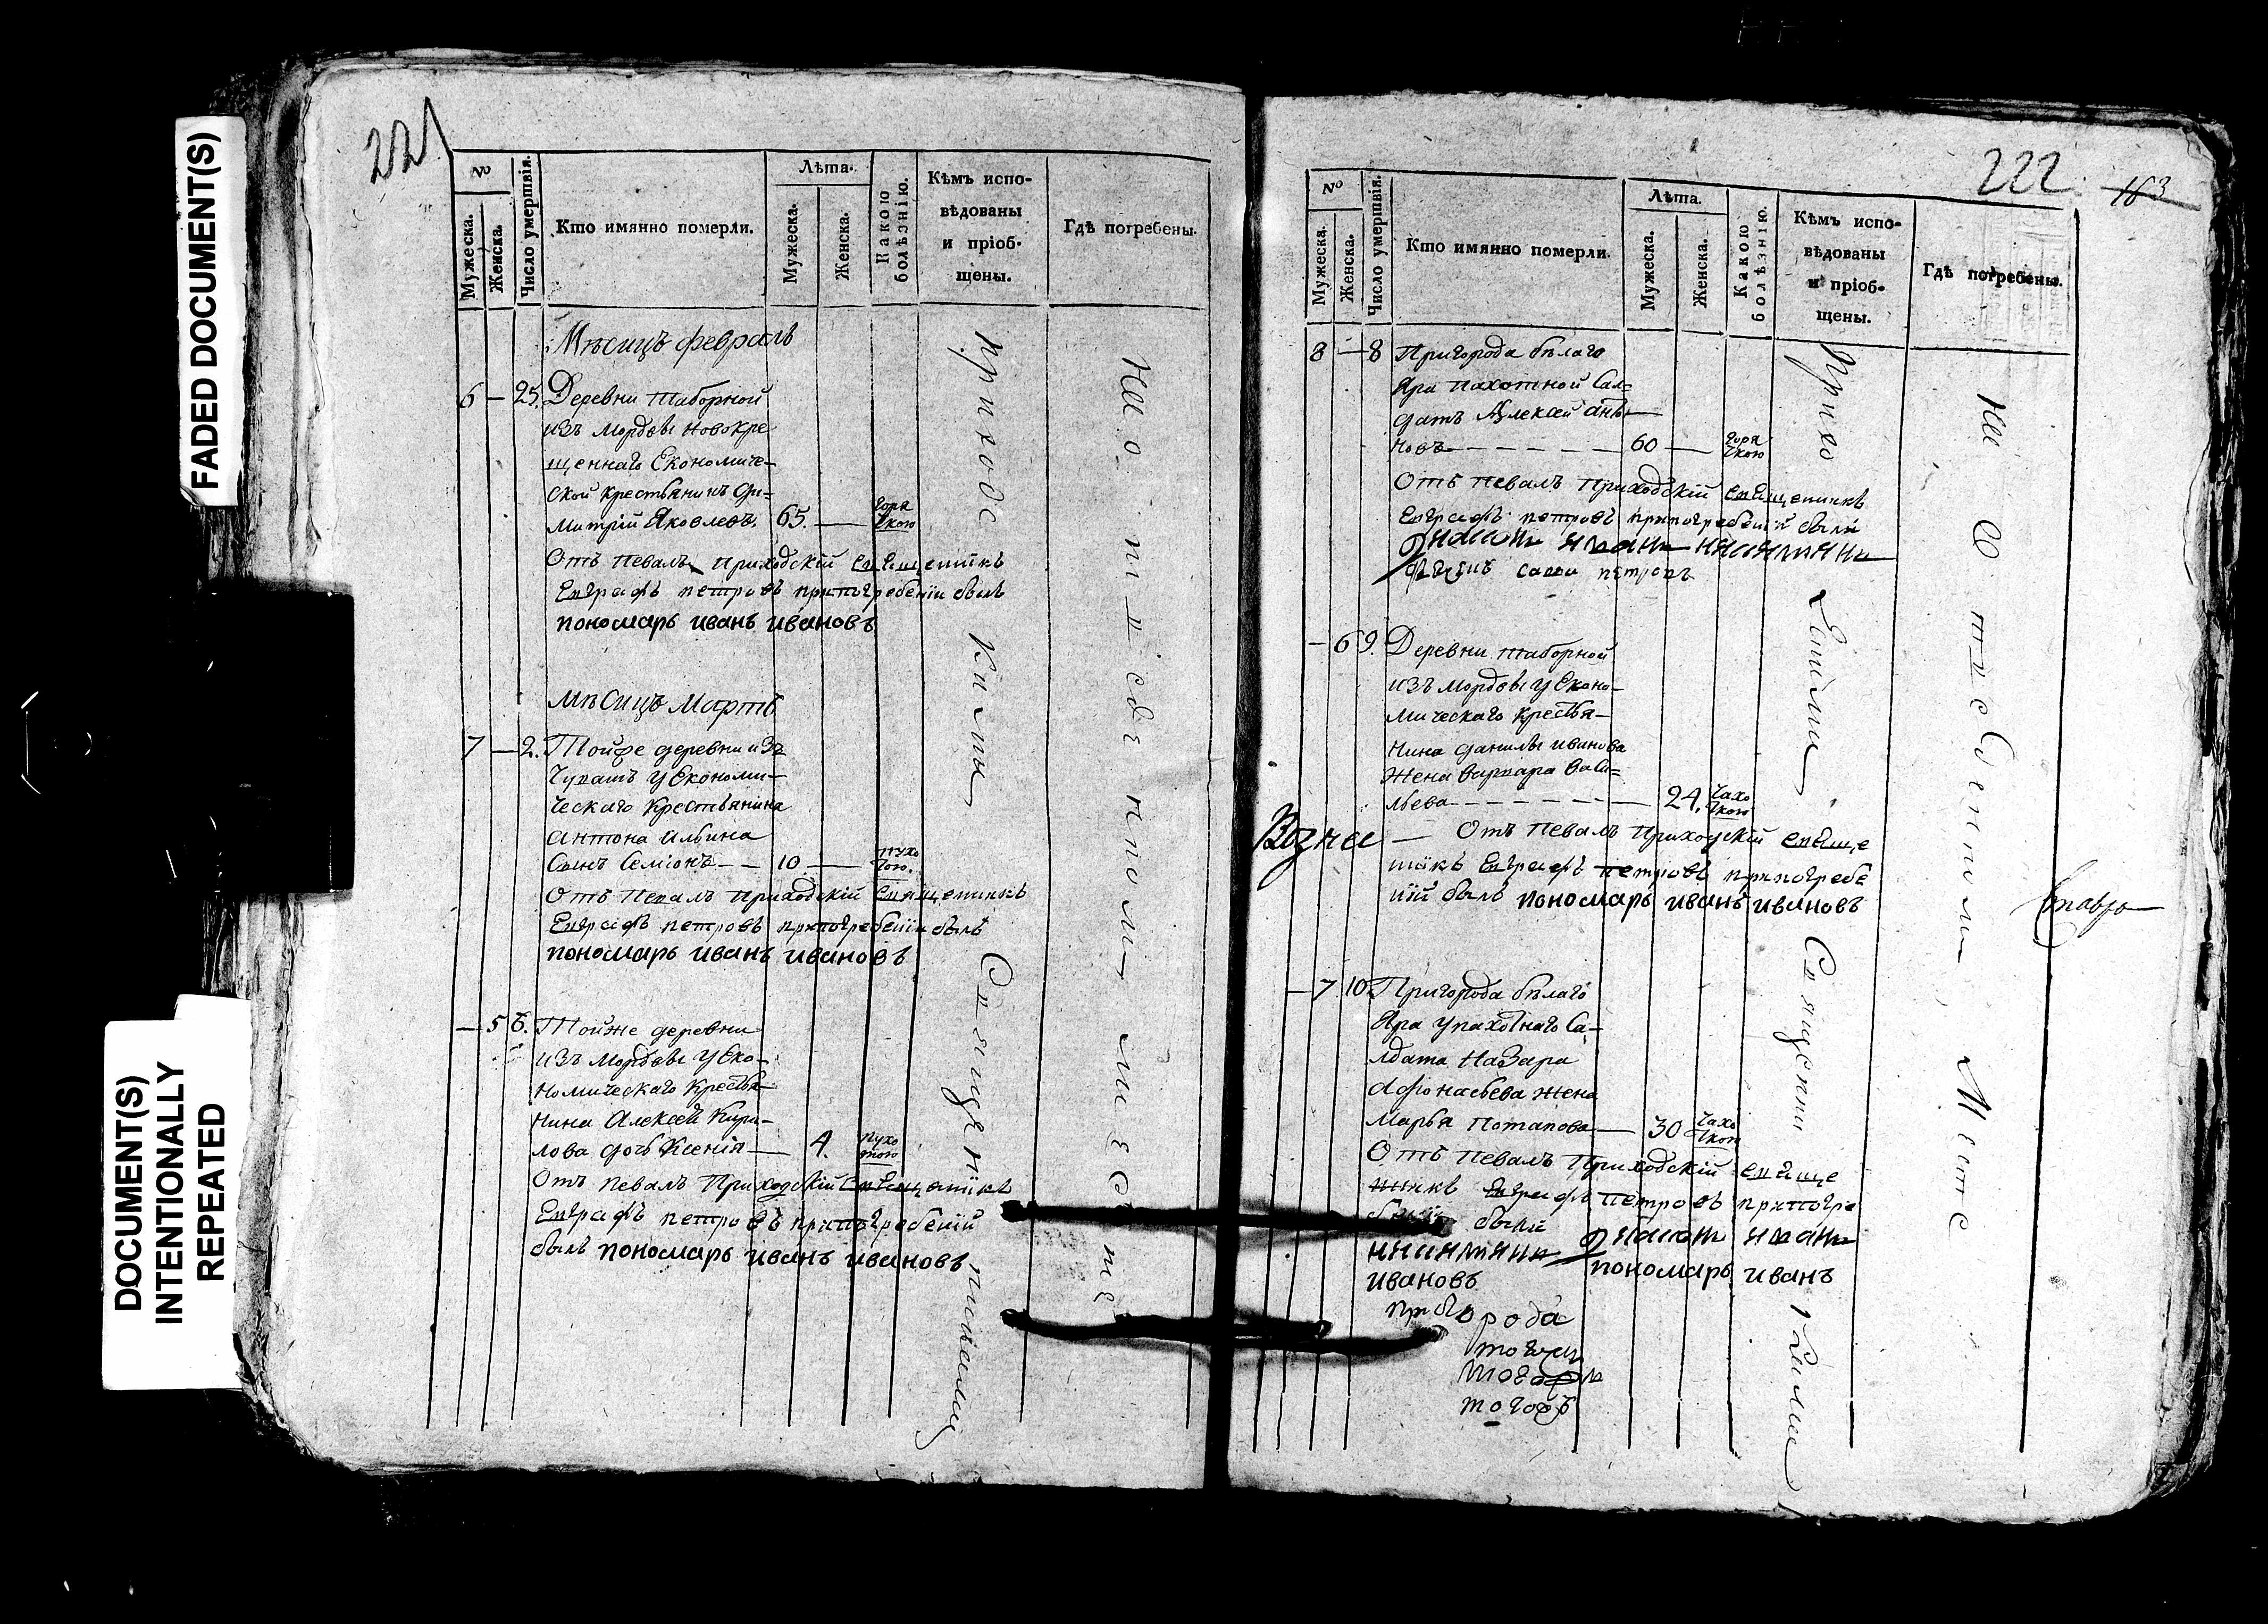 FADED DOCUMENT(S)
DOCUMENT(S)
INTENTIONALLY
REPEATED
221
№
Мужеска.
Женска.
Число умершвія.
Кто имянно померли.
Лѣта.
Мужеска.
Женска.
Какою болѣзнію.
Кѣмъ испо-
вѣдованы
и пріоб-
щены.
Гдѣ погребены.
Мѣсицъ февраль
6 — 25. Деревни таборной
изъ мордвы новокре
щеннаго Економиче-
ской крестьянинъ Ди=
митрій Яковлевъ. 65. — горя чкою
Отъ певалъ приходскій священникъ
Евграфъ петровъ припогребеніи былъ
пономарь иванъ ивановъ
мѣсицъ Мартъ
7 — 2. Тойже деревни изъ
Чувашъ у Економи-
ческаго Крестьянина
антона ильина
Сынъ Семіонъ — 10 —
Отъ Певалъ приходскій священникъ
Евграфъ петровъ припогребеніи былъ
пономарь иванъ ивановъ
— 5 6. Тойже деревни
изъ мордвы у Еко-
номическаго Крестья-
нина Алексея Кири-
лова дочь Ксенія — 4.
Отъ певалъ Приходскій священникъ
Евграфъ петровъ припогребеній
былъ пономарь иванъ ивановъ
приходскими Священниками
На отведенномъ месте
222
163
№
Мужеска.
Женска.
Число умершвія.
Кто имянно померли.
Лѣта.
Мужеска.
Женска.
Какою болѣзнію.
Кѣмъ испо-
вѣдованы
и пріоб-
щены.
Гдѣ погребены.
8 — 8 Пригорода бѣлаго
Яра пахотной Сал=
датъ Алексей ань-
новъ — 60 — горя чкою
Отъ певалъ приходскій священникъ
Евграфъ петровъ припогребеніи были
петровъ
— 6 9. Деревни таборной
изъ мордвы у Еконо-
мическаго крестья-
нина данилы иванова
жена варвара васи=
льева — 24. чахо ткою
Вознес — Отъ певалъ приходскій свяще
никъ Евграфъ петровъ припогребе
ніи былъ пономарь иванъ ивановъ
— 7 10 Пригорода бѣлаго
Яра у пахотнаго Са-
лдата Назара
Афонасьева жена
Марья Потапова — 30 чахо ткою
Отъ певалъ Приходскій свяще
никъ Евграфъ петровъ припогре
беніи были
пономарь иванъ
ивановъ